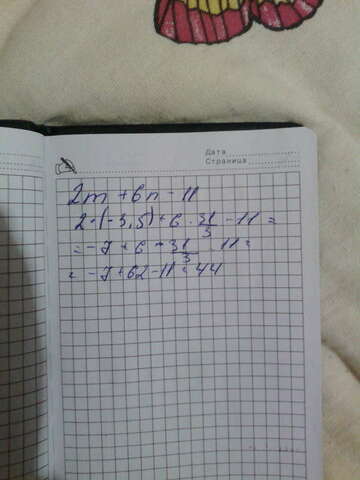 Дата
Страница
2m + 6n - 11
2·(-3,5) + 6 · 31/3 - 11 =
= -7 + 6 · 31/3 - 11 =
= -7 + 62 - 11 = 44